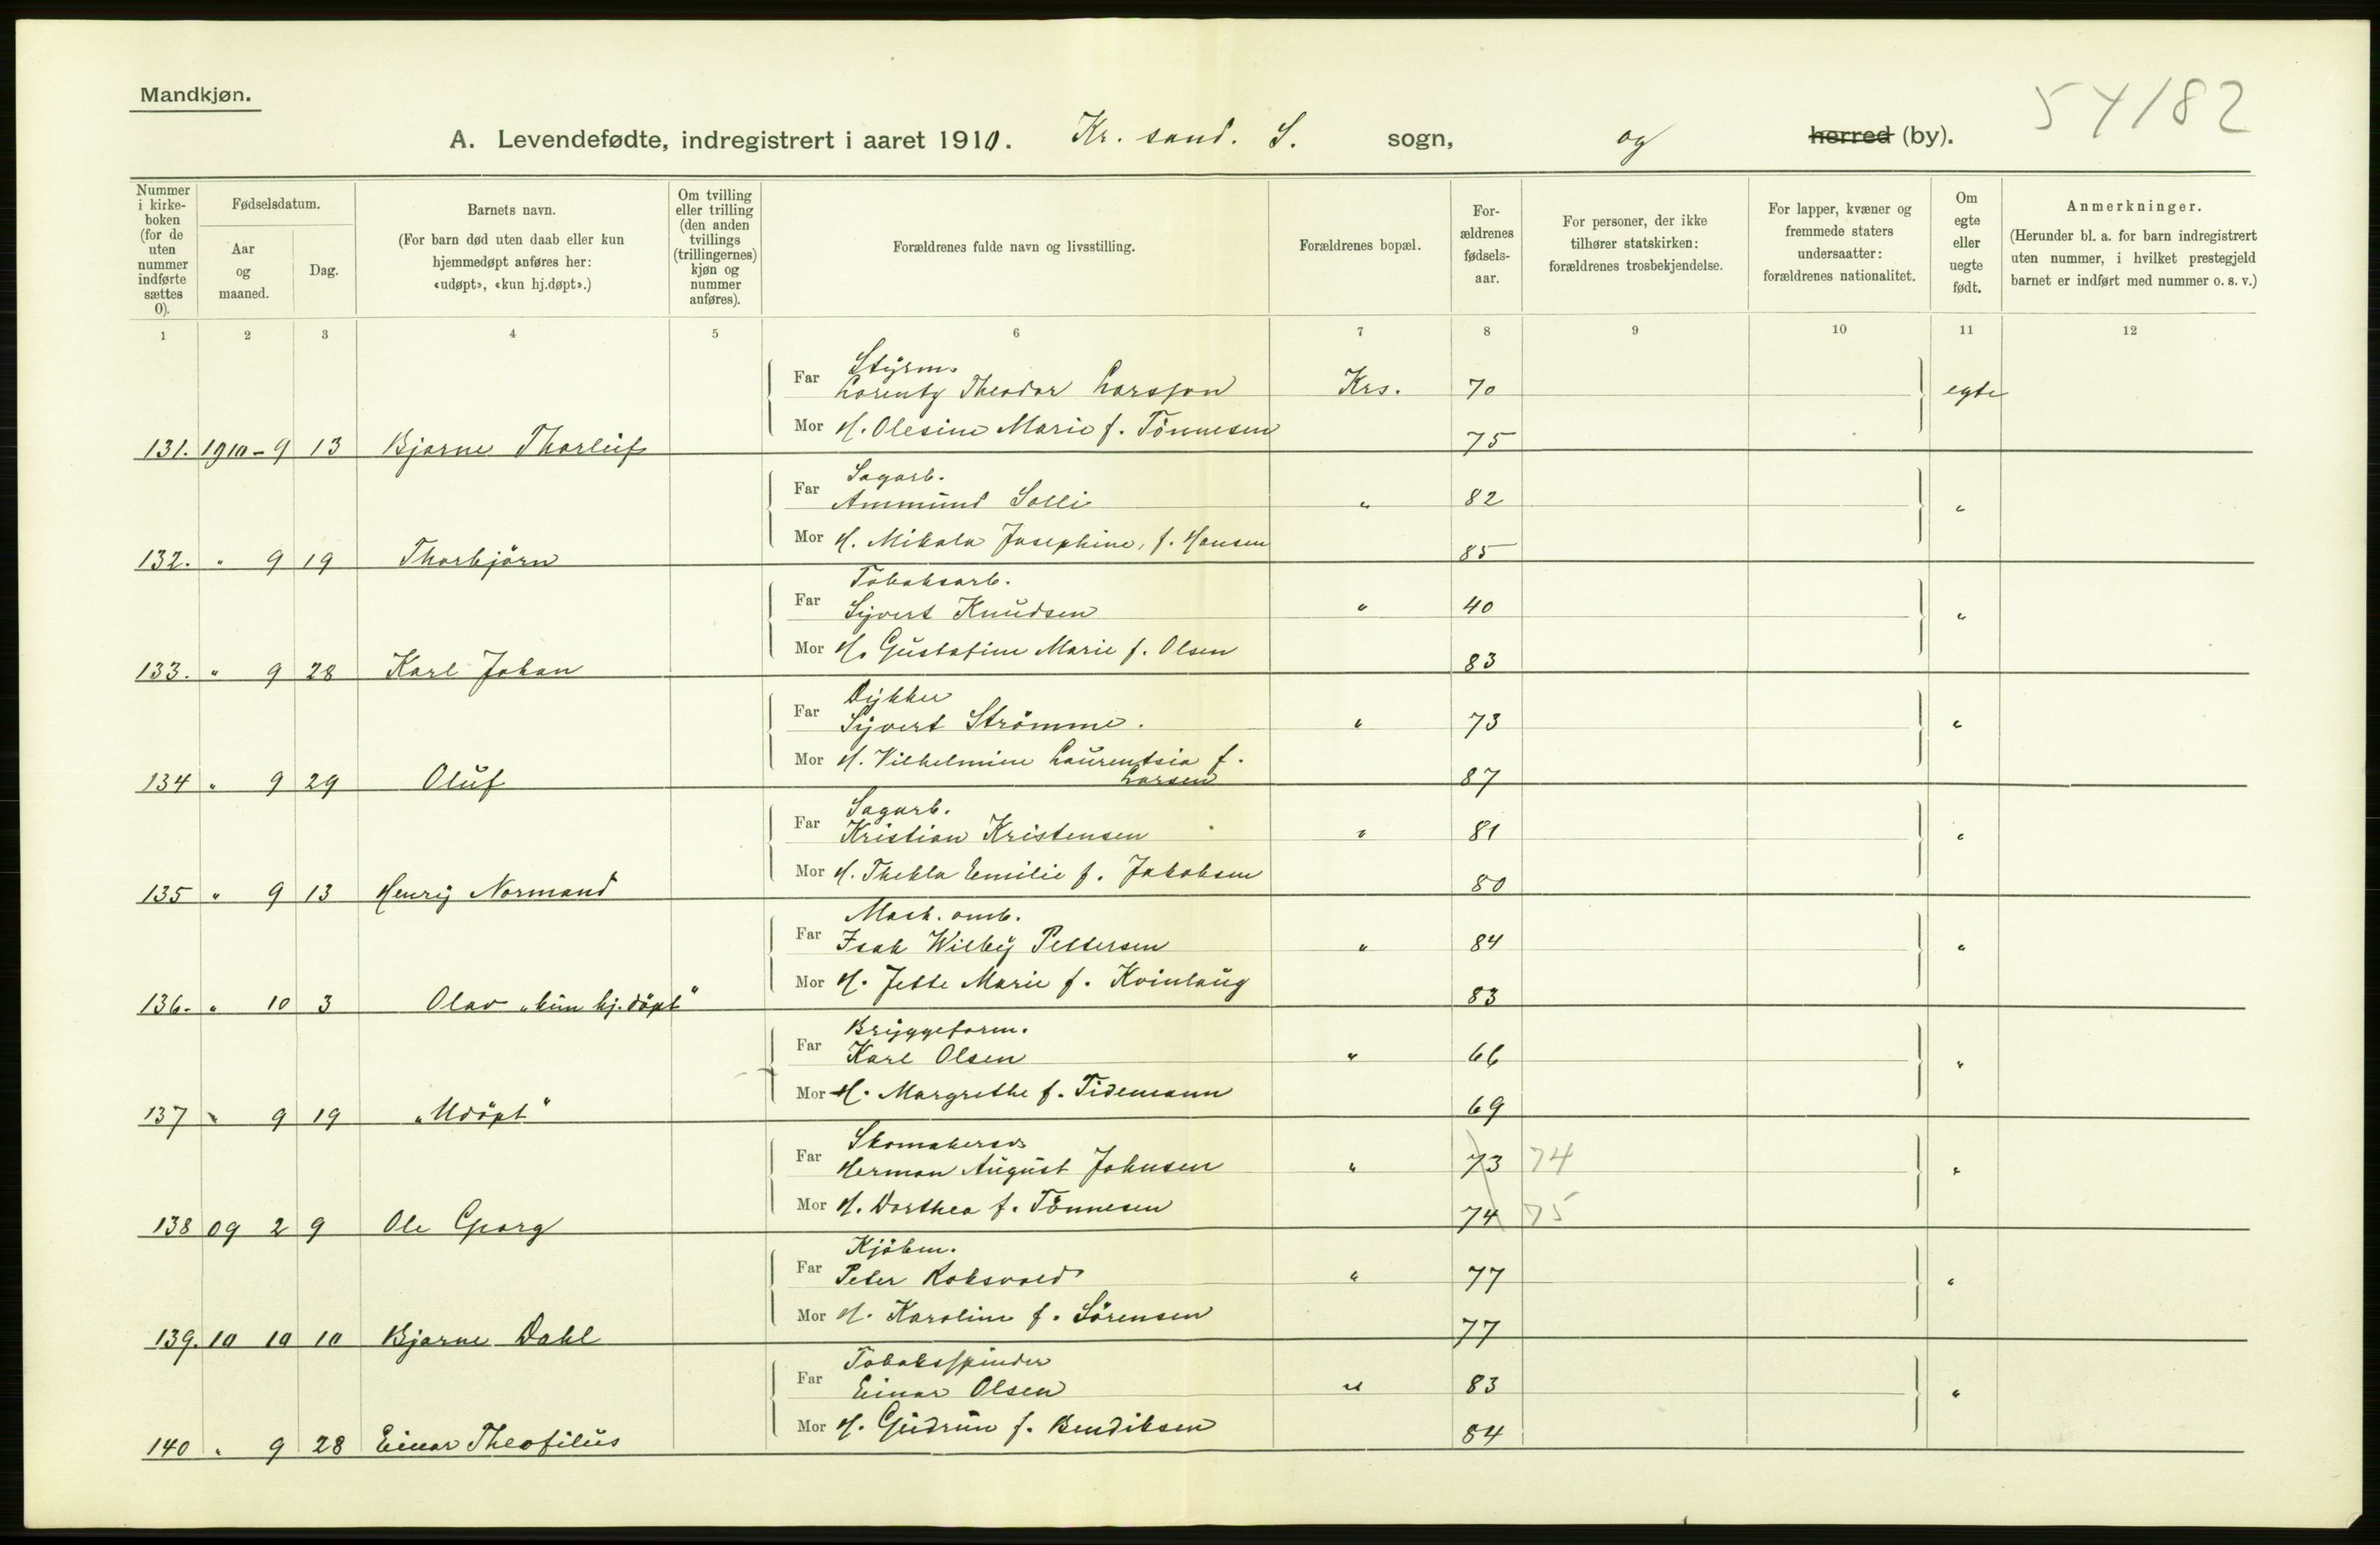 Mandkjøn.
54/82
A. Levendefødte, indregistrert i aaret 1910. Kr. sand. S. sogn, og herred (by).
Nummer i kirke-boken (for de uten nummer indførte sættes 0).
Fødselsdatum.
Aar og maaned.
Dag.
Barnets navn.
(For barn død uten daab eller kun hjemmedøpt anføres her: «udøpt», «kun hj.døpt».)
Om tvilling eller trilling (den anden tvillings (trillingernes) kjøn og nummer anføres).
Forældrenes fulde navn og livsstilling.
Forældrenes bopæl.
For-ældrenes fødsels-aar.
For personer, der ikke tilhører statskirken: forældrenes trosbekjendelse.
For lapper, kvæner og fremmede staters undersaatter: forældrenes nationalitet.
Om egte eller uegte født.
Anmerkninger.
(Herunder bl. a. for barn indregistrert uten nummer, i hvilket prestegjeld barnet er indført med nummer o. s. v.)
1 2 3 4 5 6 7 8 9 10 11 12
Styrm.
Far Lorentz Theodor Larsson Krs. 70 egte
Mor H. Olesine Marie f. Tönnesen 75
131. 1910-9 13 Bjarne Thorleif
Sagarb.
Far Ammund Solli " 82 "
Mor H. Mikala Josephine, f. Hansen 85
132. " 9 19 Thorbjörn
Tobaksarb.
Far Syvert Knudsen " 40 "
Mor H. Gustafine Marie f. Olsen 83
133. " 9 28 Karl Johan
Dykker
Far Syvert Strömme. " 73 "
Mor H. Vilhelmine Laurentsia f. Larsen 87
134 " 9 29 Oluf
Sagarb.
Far Kristian Kristensen " 81 "
Mor H. Thekla Emilie f. Jakobsen 80
135 " 9 13 Henry Normand
Mask. arb.
Far Isak Wilby Pettersen " 84 "
Mor H. Jette Marie f. Kvinlaug 83
136. " 10 3 Olav "kun hj. döpt"
Bryggeform.
Far Karl Olsen " 66 "
Mor H. Margrethe f. Tidemann 69
137 " 9 19 "Udöpt"
Far Herman August Johnsen " 73 74 "
Mor H. Dorthea f. Tönnesen 74 75
138 09 2 9 Ole Georg
Kjöbm.
Far Peter Roksvold " 77 "
Mor H. Karoline f. Sörensen 77
139. 10 10 10 Bjarne Dahl
Tobaksspinder
Far Einar Olsen " 83 "
Mor H. Gudrun f. Bendiksen 84
140 " 9 28 Einar Theofilus